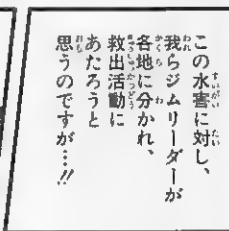 この水害に対し、
我らジムリーダーが
各地に分かれ、
救出活動に
あたろうと
思うのですが…!!